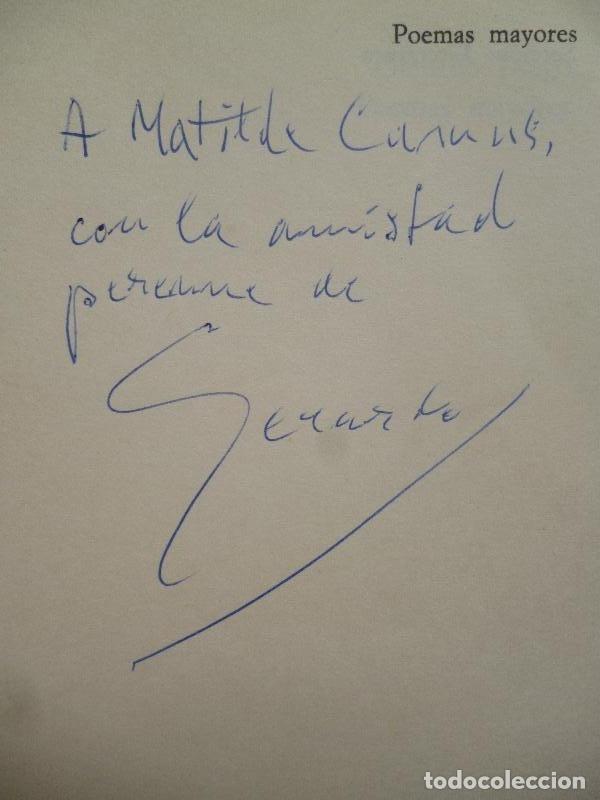 Poemas mayores
A Matilde Camus,
con la amistad
perenne de
Gerardo
todocoleccion